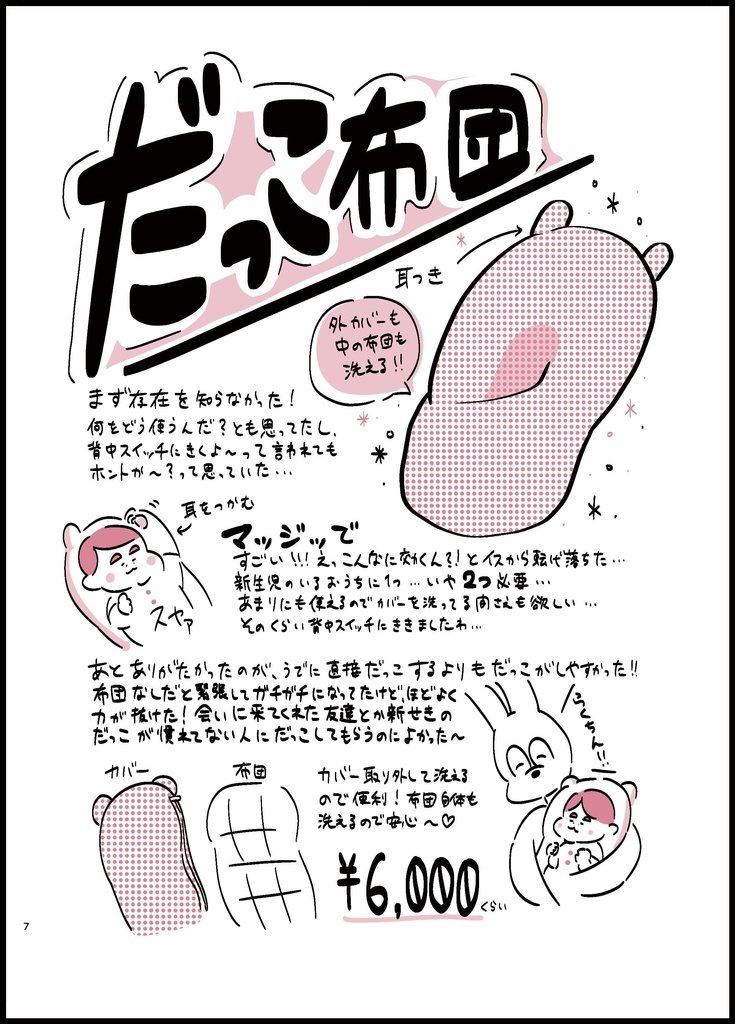 だっこ布団
耳つき
外カバーも
中の布団も
洗える!!
まず存在を知らなかった!
何もどう使うんだ?とも思ってたし、
背中スイッチにきくよ〜って言われても
ホントか〜?って思っていた…
耳をつかむ
スヤァ
マッジッで
すごい!!!えっこんなに効くん?!とイスから転げ落ちた…
新生児のいるおうちに1つ…いや2つ必要…
あまりにも使えるのでカバーを洗ってる間さえも欲しい…
そのくらい背中スイッチにききましたわ…
あとありがたかったのが、うでに直接だっこするよりもだっこがしやすかった!!
布団なしだと緊張してガチガチになってたけど、ほどよく
力が抜けた!会いに来てくれた友達とか新せきの
だっこが慣れてない人にだっこしてもらうのによかった〜
ふくちん!!
カバー
布団
カバー取り外して洗える
ので便利!布団自体も
洗えるので安心〜♡
¥6,000くらい
7